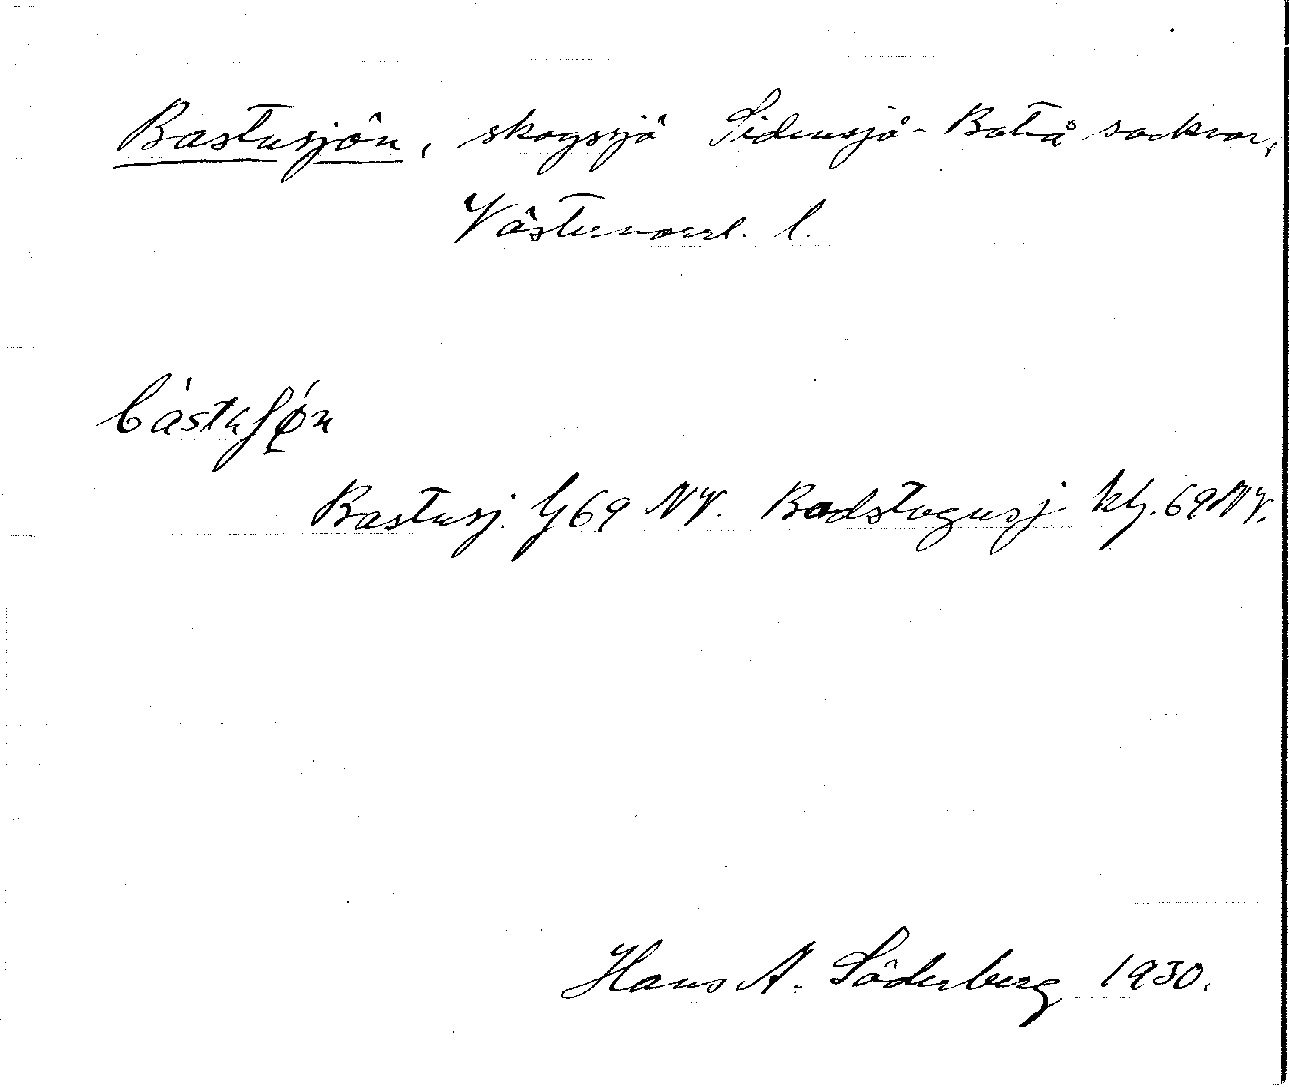 Bastusjön, skogssjö Sidensjö-Boteå socknar,
Västernorrl. l.
Bastusj. G69 NV. Badstugusj. 69NV.
Hans A. Söderberg 1930.